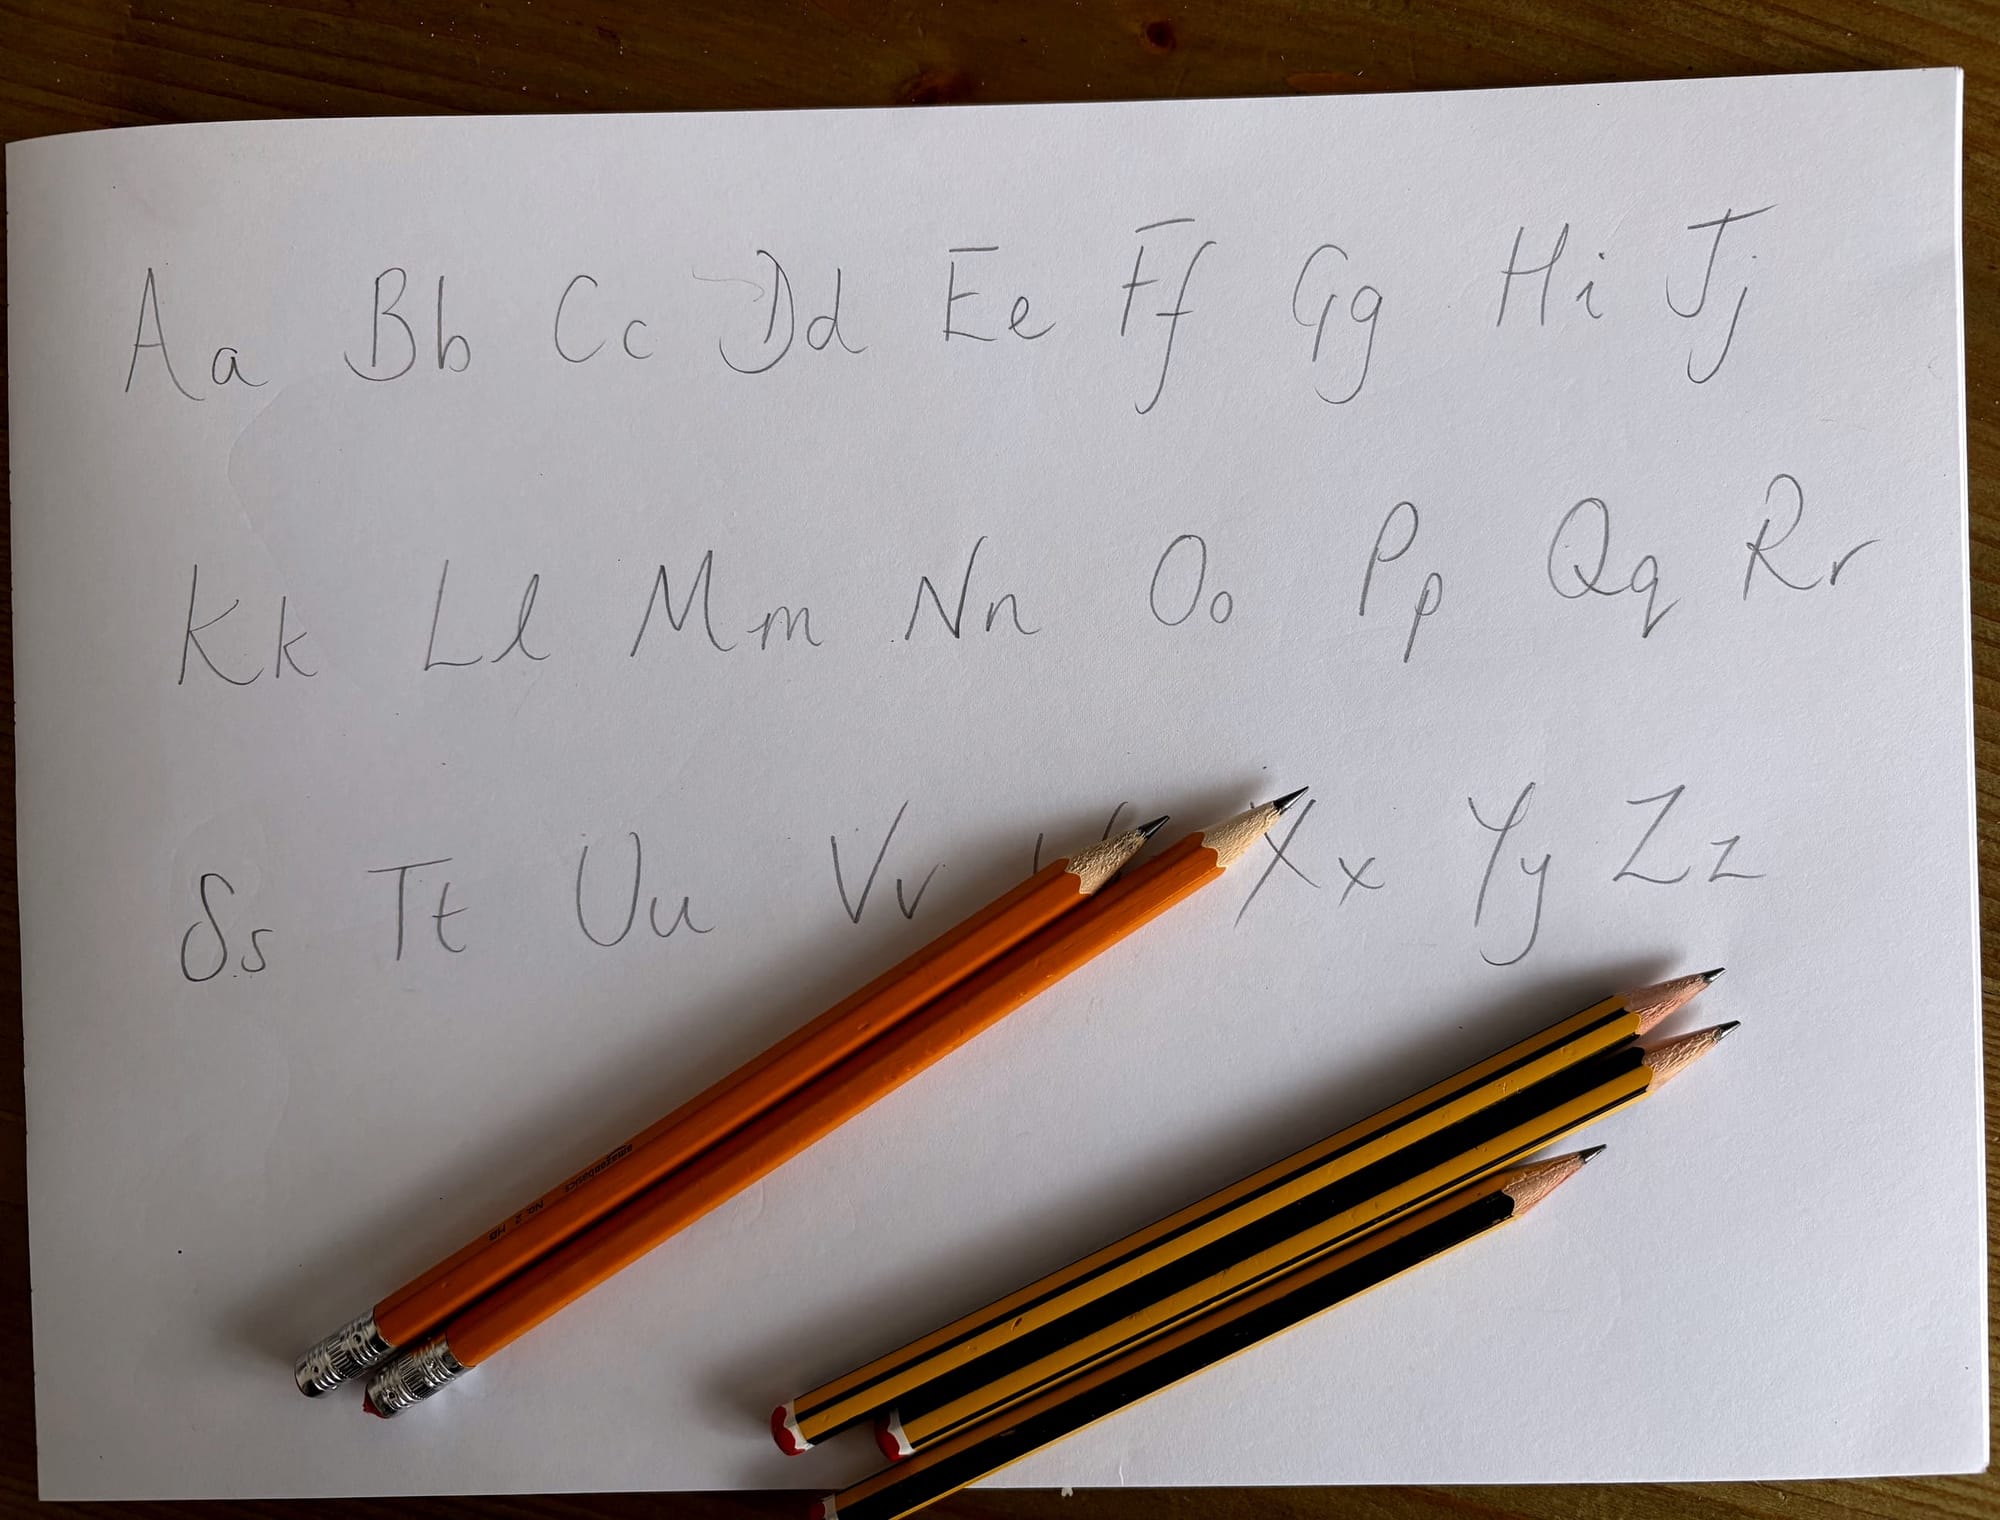 Aa Bb Cc Dd Ee Ff Gg Hi Jj
Kk Ll Mm Nn Oo Pp Qq Rr
Ss Tt Uu Vv Xx Yy Zz
amazonbasics No. 2 HB